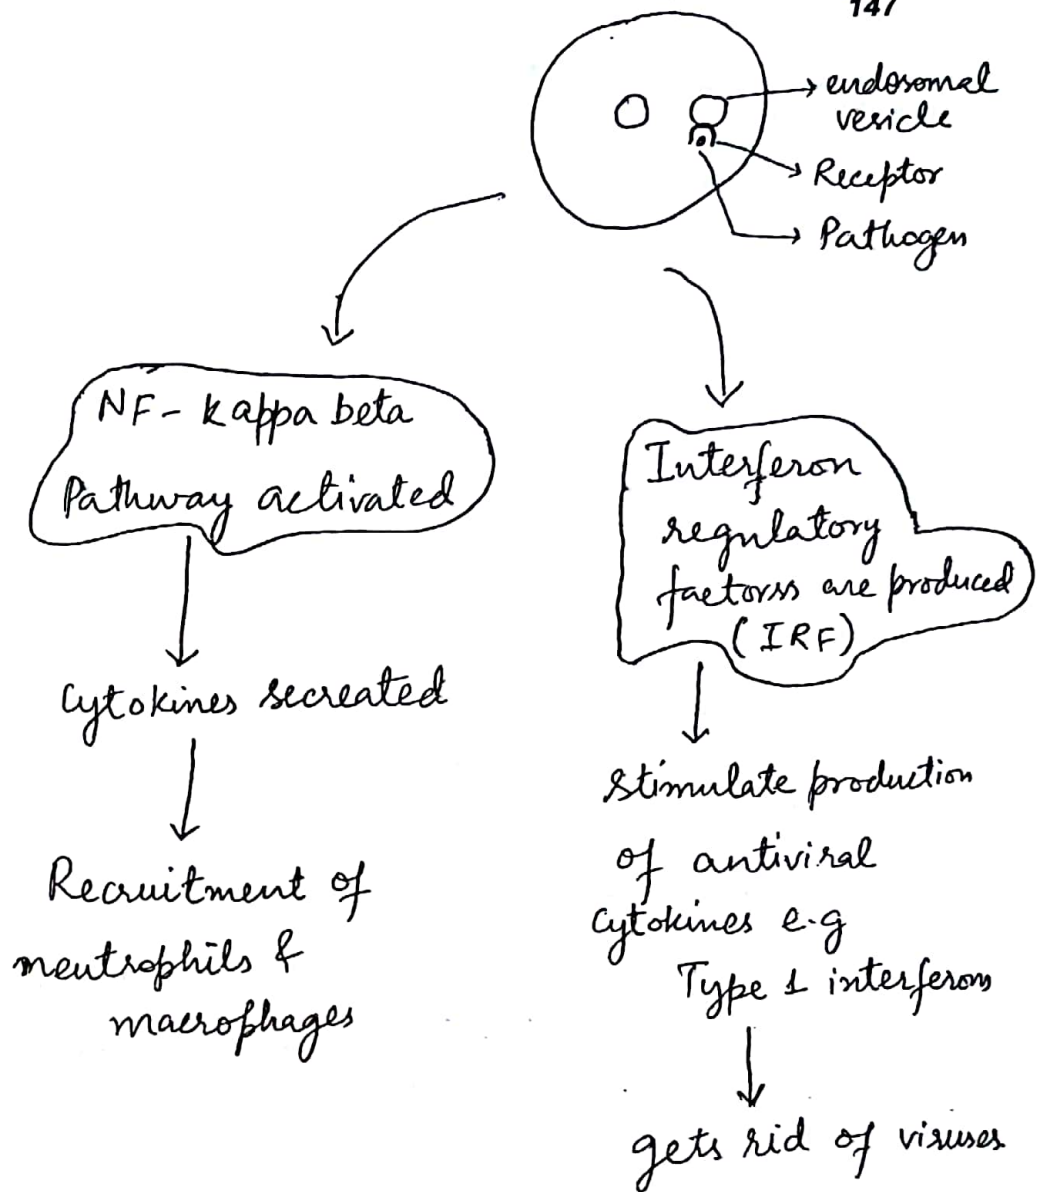 147
endosomal
vesicle
Receptor
Pathogen
NF- kappa beta
Pathway activated
Cytokines secreated
Recruitment of
neutrophils &
macrophages
Interferon
regulatory
factorss are produced
(IRF)
Stimulate production
of antiviral
Cytokines e.g
Type 1 interferons
gets rid of viruses